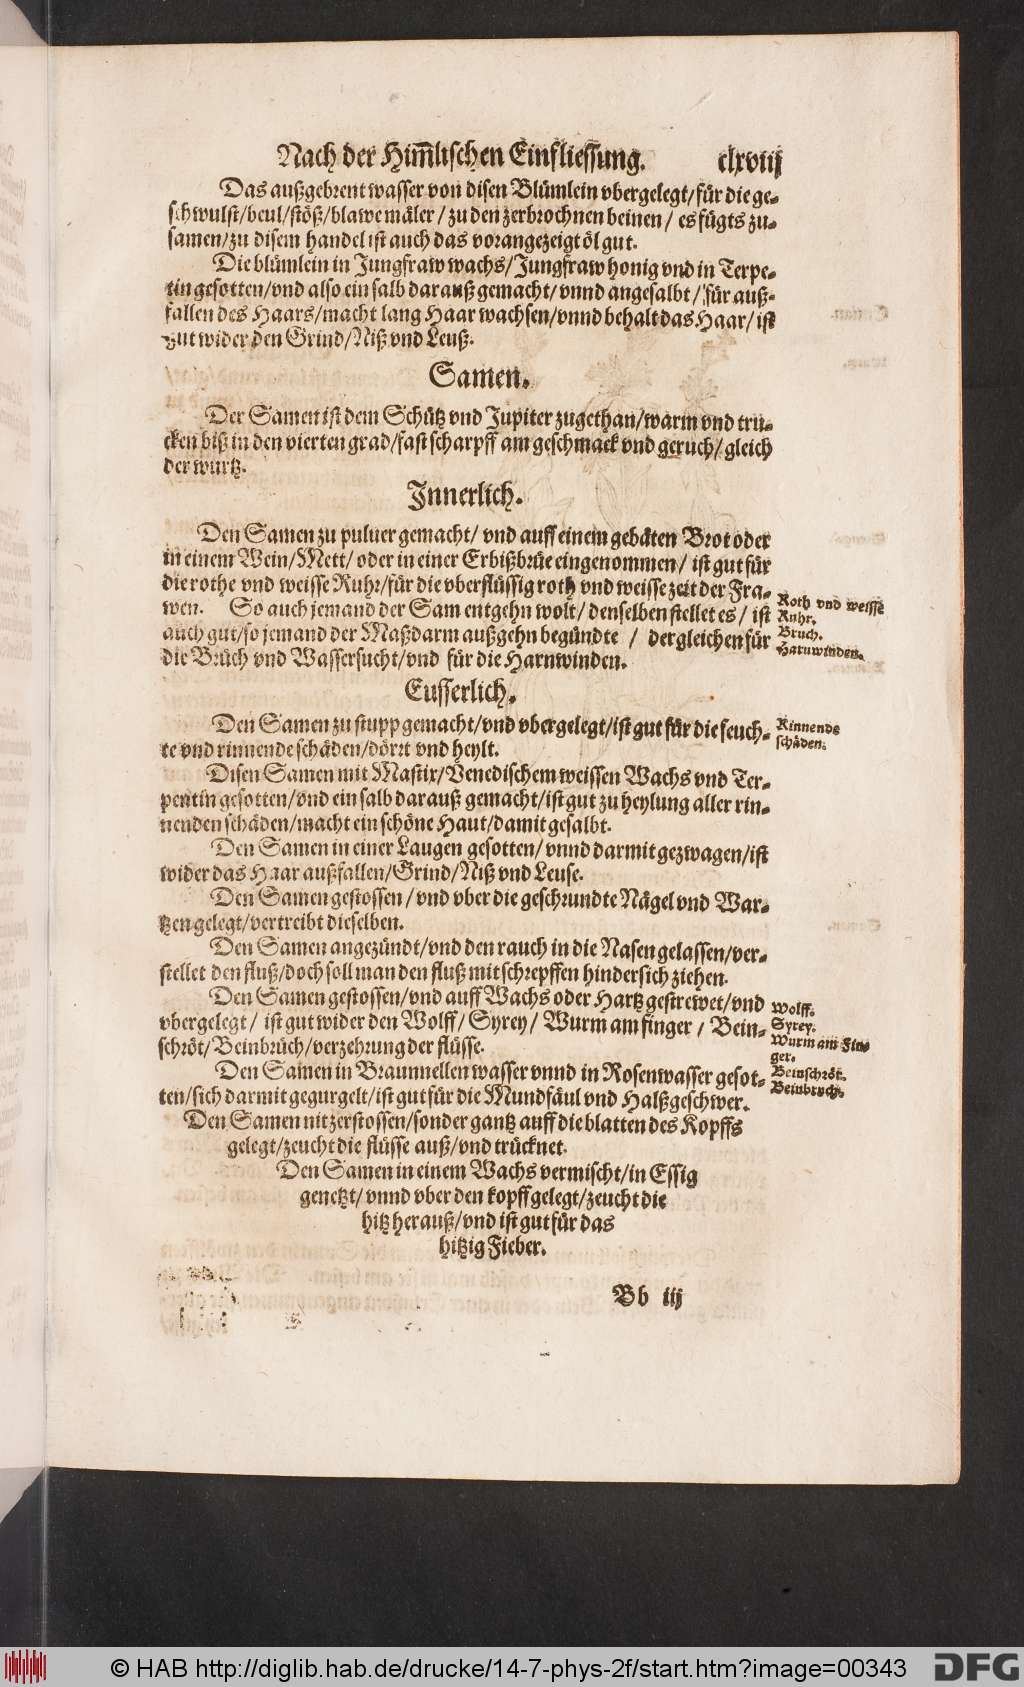 Nach der Him̄lischen Einfliessung. clxviij
Das außgebrent wasser von disen Blümlein vbergelegt/für die ge-
schwulst/beul/stöß/blawe mäler/zu den zerbrochnen beinen/ es fügts zu-
samen/zu disem handel ist auch das vorangezeigt öl gut.
Die blümlein in Jungfraw wachs/Jungfraw honig vnd in Terpe-
tin gesotten/vnd also ein salb darauß gemacht/vnnd angesalbt/für auß-
fallen des Haars/macht lang Haar wachsen/vnnd behalt das Haar/ist
gut wider den Grind/Niß vnd Leuß.
Samen.
Der Samen ist dem Schütz vnd Jupiter zugethan/warm vnd tru-
cken biß in den vierten grad/fast scharpff am geschmack vnd geruch/gleich
der wurtz.
Innerlich.
Den Samen zu puluer gemacht/ vnd auff einem gebäten Brot oder
in einem Wein/Mett/ oder in einer Erbißbrüe eingenommen/ ist gut für
die rothe vnd weisse Ruhr/für die vberflüssig roth vnd weisse zeit der Fra-
wen. So auch jemand der Sam entgehn wolt/ denselben stellet es/ ist
auch gut/so jemand der Maßdarm außgehn begündte / dergleichen für
die Brüch vnd Wassersucht/vnd für die Harnwinden.
Roth vnd weisse
Ruhr.
Bruch.
Harnwinden.
Eusserlich.
Den Samen zu stupp gemacht/vnd vbergelegt/ist gut für die feuch-
te vnd rinnende schäden/dörrt vnd heylt.
Rinnende
schäden.
Disen Samen mit Mastix/Venedischem weissen Wachs vnd Ter-
pentin gesotten/vnd ein salb darauß gemacht/ist gut zu heylung aller rin-
nenden schäden/macht ein schöne Haut/damit gesalbt.
Den Samen in einer Laugen gesotten/ vnnd darmit gezwagen/ist
wider das Haar außfallen/Grind/Niß vnd Leuse.
Den Samen gestossen/vnd vber die geschrundte Nägel vnd War-
tzen gelegt/vertreibt dieselben.
Den Samen angezündt/vnd den rauch in die Nasen gelassen/ver-
stellet den fluß/doch soll man den fluß mit schrepffen hindersich ziehen.
Den Samen gestossen/vnd auff Wachs oder Hartz gestrewet/vnd
vbergelegt/ ist gut wider den Wolff/ Syrey/ Wurm am finger / Bein-
schröt/Beinbrüch/verzehrung der flüsse.
Wolff.
Syrey.
Wurm am Fin-
ger.
Beinschröt.
Beinbruch.
Den Samen in Braunnellen wasser vnnd in Rosenwasser gesot-
ten/sich darmit gegurgelt/ist gut für die Mundfäul vnd Halßgeschwer.
Den Samen nit zerstossen/sonder gantz auff die blatten des Kopffs
gelegt/zeucht die flüsse auß/vnd trücknet.
Den Samen in einem Wachs vermischt/in Essig
genetzt/ vnnd vber den kopff gelegt/zeucht die
hitz herauß/vnd ist gut für das
hitzig Fieber.
Bb iij
© HAB http://diglib.hab.de/drucke/14-7-phys-2f/start.htm?image=00343
DFG